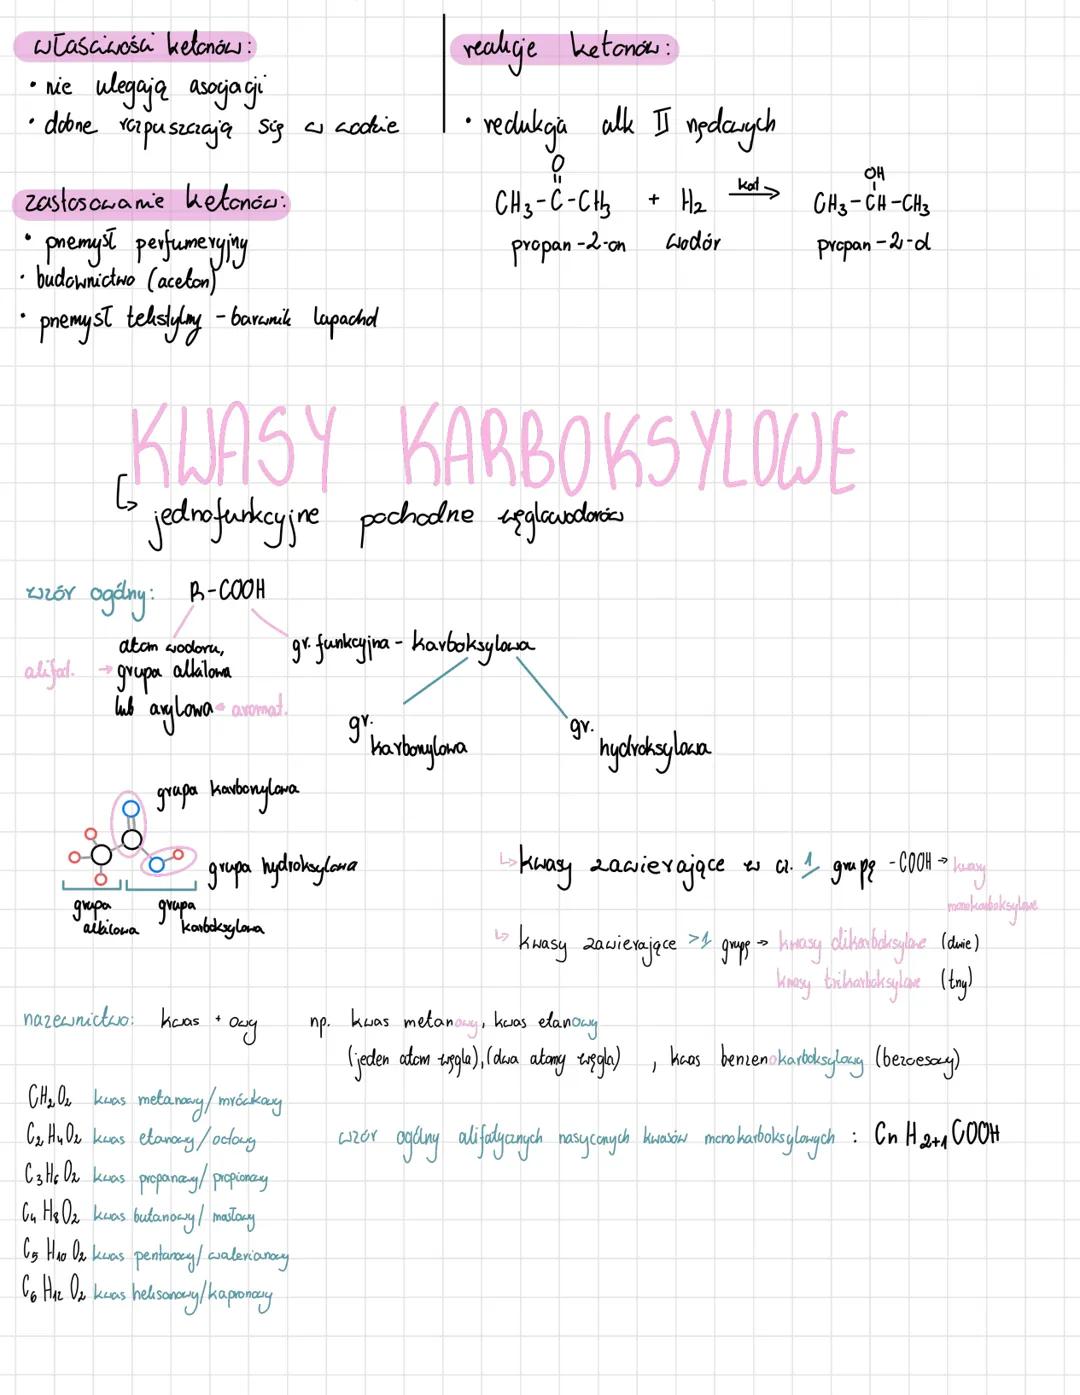 właściwości ketonów:
• nie ulegają asocjacji
• dobrze rozpuszczają się w wodzie
zastosowanie ketonów:
• przemysł perfumeryjny
• budownictwo (aceton)
• przemysł tekstylny - barwnik lapachol
reakcje ketonów:
• redukcja alk II rzędowych
O
CH3-C-CH3 + H2 kat. → OH
CH3-CH-CH3
propan-2-on wodór propan-2-ol
KWASY KARBOKSYLOWE
↳ jednofunkcyjne pochodne węglowodorów
wzór ogólny: R-COOH
atom wodoru,
alifat. → grupa alkilowa
lub arylowa aromat.
gr. funkcyjna - karboksylowa
gr. karbonylowa
gr. hydroksylowa
grupa karbonylowa
grupa hydroksylowa
grupa alkilowa
grupa karboksylowa
↳ kwasy zawierające w cz. 1 grupę -COOH → kwasy monokarboksylowe
↳ kwasy zawierające >1 grupę → kwasy dikarboksylowe (dwie)
kwasy trikarboksylowe (trzy)
nazewnictwo: kwas + owy np. kwas metanowy, kwas etanowy
(jeden atom węgla), (dwa atomy węgla), kwas benzenokarboksylowy (benzoesowy)
CH2O2 kwas metanowy/mrówkowy
C2H4O2 kwas etanowy/octowy
C3H6O2 kwas propanowy/propionowy
C4H8O2 kwas butanowy/masłowy
C5H10O2 kwas pentanowy/walerianowy
C6H12O2 kwas heksanowy/kapronowy
wzór ogólny alifatycznych nasyconych kwasów monokarboksylowych: CnH2+1COOH